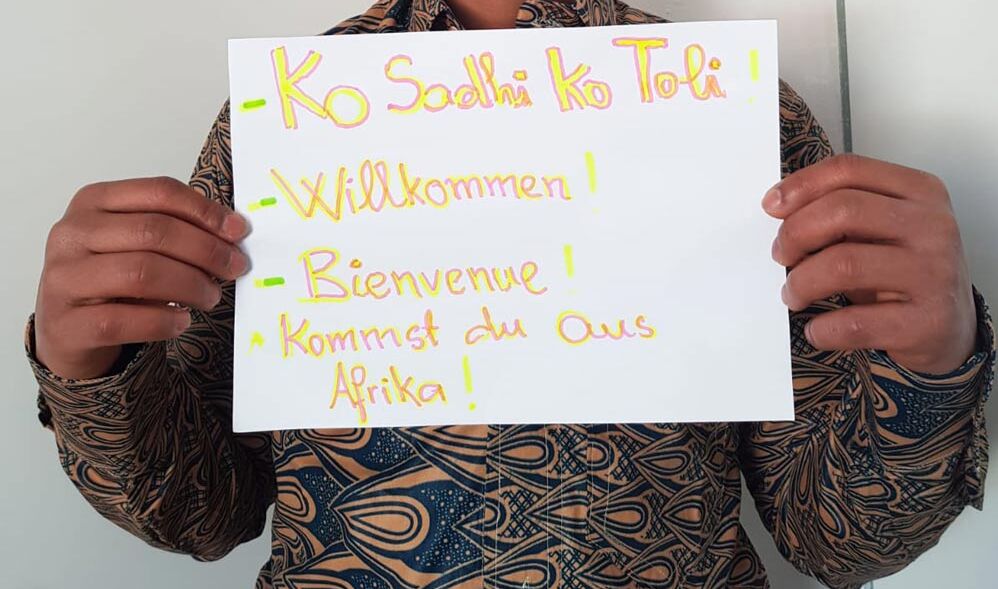 - Ko Sadhi Ko Toli !
- Willkommen !
- Bienvenue !
* Kommst du aus
Afrika !